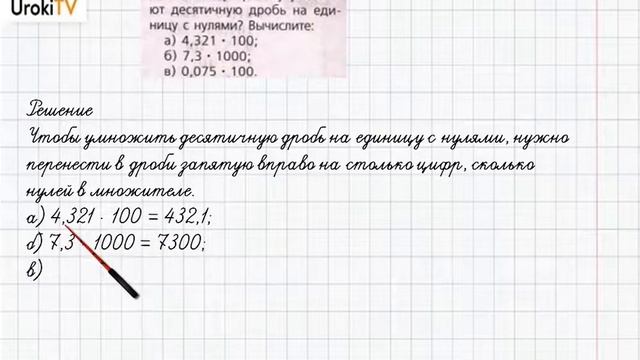 UrokiTV
ют десятичную дробь на еди-
ницу с нулями? Вычислите:
а) 4,321 · 100;
б) 7,3 · 1000;
в) 0,075 · 100.
Решение
Чтобы умножить десятичную дробь на единицу с нулями, нужно
перенести в дроби запятую вправо на столько цифр, сколько
нулей в множителе.
а) 4,321 · 100 = 432,1;
б) 7,3 · 1000 = 7300;
в)